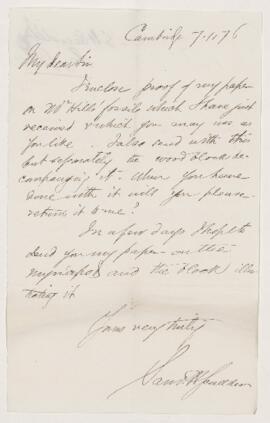 Cambridge 7.1.76
My dear Sir
I enclose proof of my paper
on Mr Hill's fossils which I have just
received & which you may use as
you like. I also send with this
but separately the wood block ac-
companying it. When you have
done with it will you please
return it to me?
In a few days I hope to
send you my paper on the
myriapods and the block illus-
trating it.
Yours very truly
Sam. H. Scudder